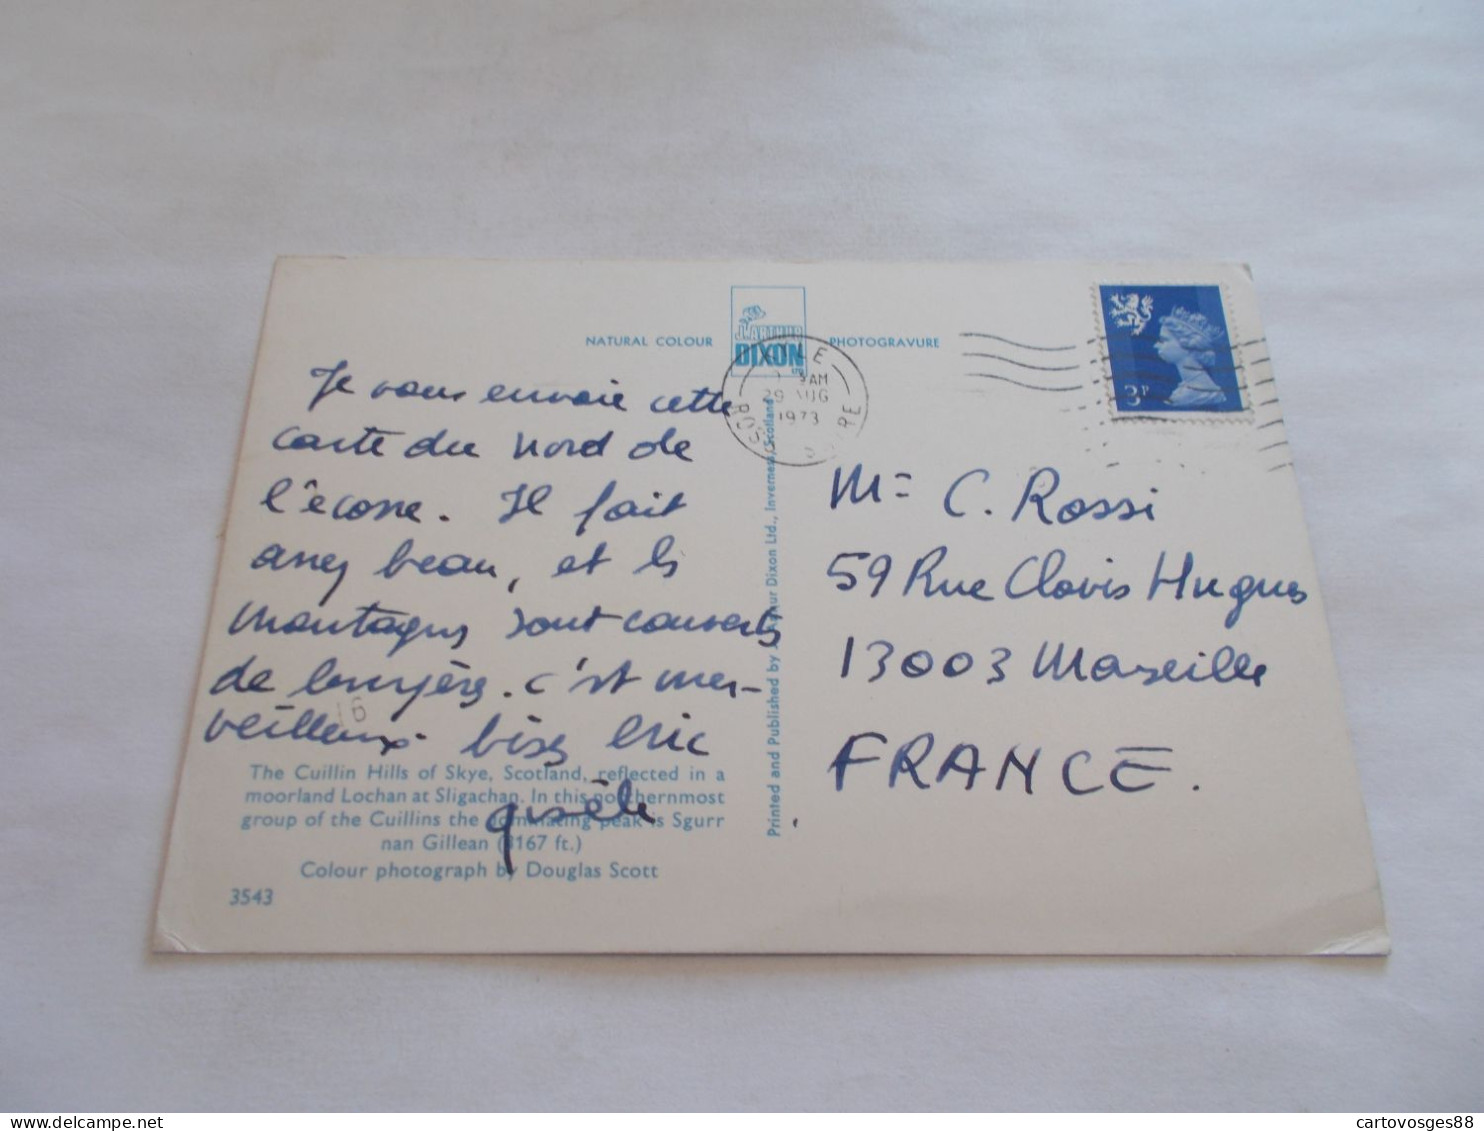 NATURAL COLOUR
J. ARTHUR
DIXON
LTD
PHOTOGRAVURE
KYLE
AM
29 AUG
1973
3P
Je vous envoie cette
carte du nord de
l'écosse. Il fait
assez beau, et les
montagnes sont couverts
de bruyères. c'est mer-
veilleux. bises eric
gisèle
16
The Cuillin Hills of Skye, Scotland, reflected in a
moorland Lochan at Sligachan. In this northernmost
group of the Cuillins the dominating peak is Sgurr
nan Gillean (3167 ft.)
Colour photograph by Douglas Scott
3543
Printed and Published by J. Arthur Dixon Ltd., Inverness, Scotland
Me C. Rossi
59 Rue Clovis Hugues
13003 Marseille
FRANCE.
cartovosges88